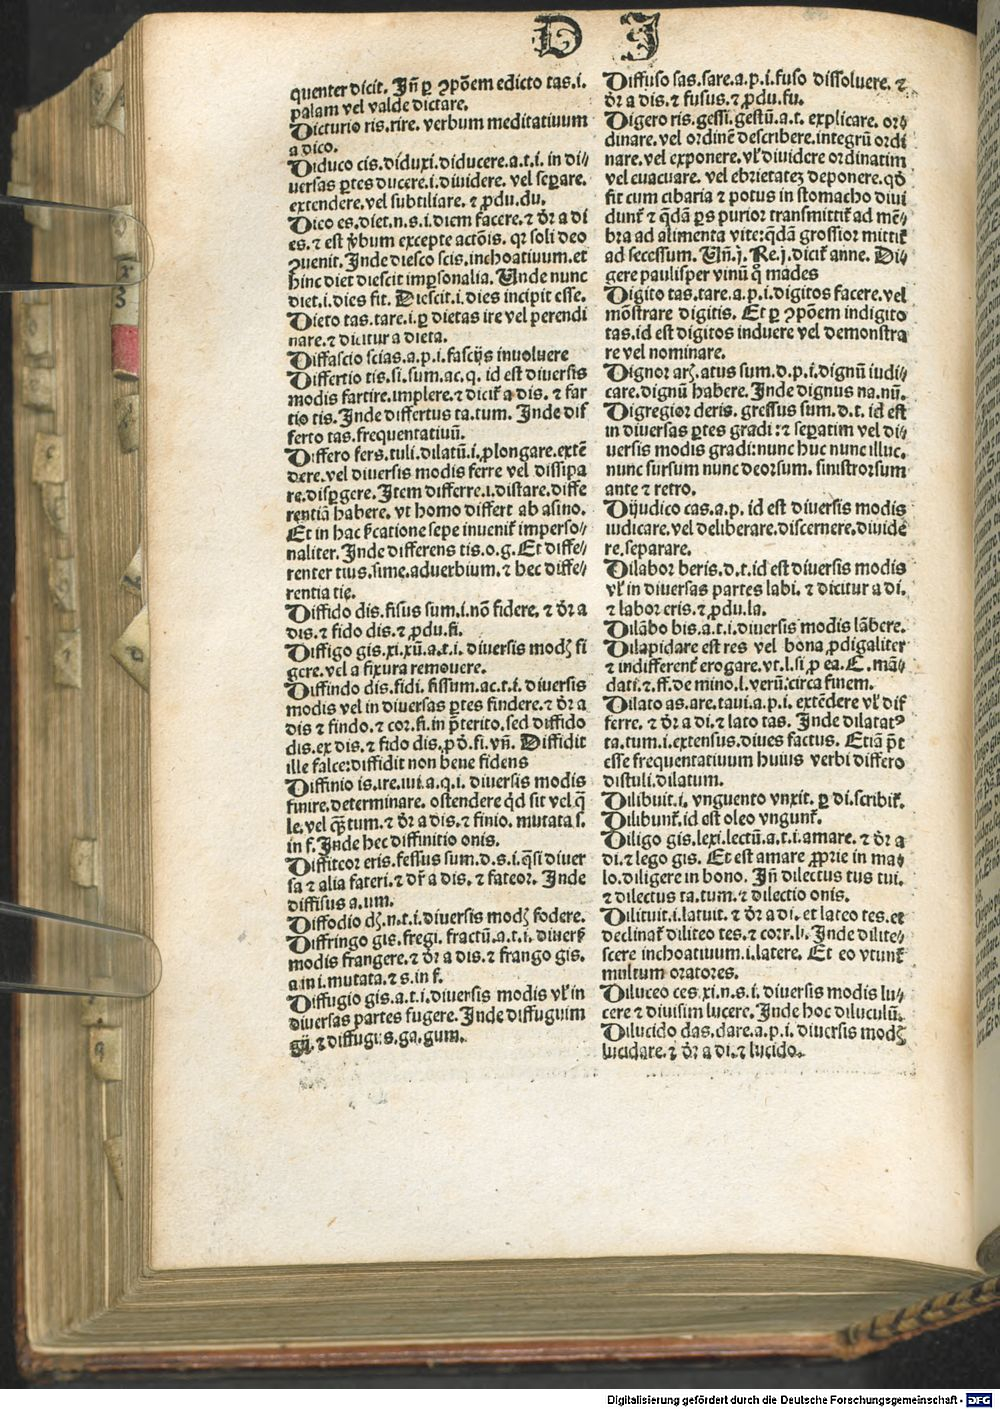 D J
quenter dicit. Jn̄ ꝑ ↄpōem edicto tas.i.
palam vel valde dictare.
Dicturio ris.rire. verbum meditatiuum
a dico.
Diduco cis.diduxi.diducere.a.t.i. in di⸗
uersas ꝑtes ducere.i.diuidere. vel seꝑare.
extendere.vel subtiliare. ⁊ ꝓdu.du.
Dico es.diet.n.s.i.diem facere.⁊ dr̄ a di
es.⁊ est v̄bum excepte actōis. qꝛ soli deo
ↄuenit. Jnde diesco scis.inchoatiuum.et
hinc diet diescit imꝑsonalia. Unde nunc
diet.i.dies fit. Diescit.i.dies incipit esse.
Dieto tas.tare.i.ꝑ dietas ire vel perendi
nare.⁊ dicitur a dieta.
Diffascio scias.a.p.i.fascijs inuoluere
Differtio tis.si.sum.ac.q. id est diuersis
modis fartire.implere.⁊ dicit̄ a dis. ⁊ far
tio tis. Jnde differtus ta.tum. Jnde dif
ferto tas.frequentatiuū.
Differo fers.tuli.dilatū.i.ꝓlongare.extē
dere.vel diuersis modis ferre vel dissipa
re.disꝑgere.Jtem differre.i.distare.diffe
rentiā habere. vt homo differt ab asino.
Et in hac s̄catione sepe inuenit̄ imperso⸗
naliter. Jnde differens tis.o.g. Et diffe⸗
renter tius.sime.aduerbium.⁊ hec diffe⸗
rentia tie.
Diffido dis.fisus sum.i.nō fidere. ⁊ dr̄ a
dis.⁊ fido dis.⁊ ꝓdu.fi.
Diffigo gis.xi.xū.a.t.i. diuersis modꝭ fi
gere.vel a fixura remouere.
Diffindo dis.fidi. fissum.ac.t.i. diuersis
modis vel in diuersas ꝑtes findere.⁊ dr̄ a
dis ⁊ findo.⁊ cor.fi.in p̄terito.sed diffido
dis.ex dis.⁊ fido dis.ꝓd̄.fi.vn̄. Diffidit
ille falce:diffidit non bene fidens
Diffinio is.ire.iui.a.q.i. diuersis modis
finire.determinare. ostendere q̇d sit vel q̄
le.vel q̄ꝫtum.⁊ dr̄ a dis.⁊ finio. mutata s.
in f.Jnde hec diffinitio onis.
Diffiteor eris.fessus sum.d.s.i.q̄si diuer
sa ⁊ alia fateri.⁊ dr̄ a dis.⁊ fateor. Jnde
diffisus a.um.
Diffodio dꝭ.n.t.i.diuersis modꝭ fodere.
Diffringo gis.fregi. fractū.a.t.i. diuers̄
modis frangere.⁊ dr̄ a dis.⁊ frango gis.
a in i.mutata.⁊ s.in f.
Diffugio gis.a.t.i.diuersis modis vl̓ in
diuersas partes fugere. Jnde diffugium
gij.⁊ diffugus.ga.gum.
Diffuso sas.sare.a.p.i.fuso dissoluere. ⁊
dr̄ a dis.⁊ fusus.⁊ ꝓdu.fu.
Digero ris.gessi.gestū.a.t. explicare. or⸗
dinare.vel ordinē describere.integrū ordi
nare.vel exponere.vl̓ diuidere ordinatim
vel euacuare. vel ebrietateꝫ deponere.qd̄
fit cum cibaria ⁊ potus in stomacho diui
dunt̄ ⁊ q̄dā ꝑs purior transmittit̄ ad mē⸗
bra ad alimenta vite:q̄dā grossior mittit̄
ad secessum. Un̄.j. Re.j.dicit̄ anne. Di⸗
gere paulisper vinū q̄ mades
Digito tas.tare.a.p.i.digitos facere.vel
mōstrare digitis. Et ꝑ ↄpōem indigito
tas.id est digitos induere vel demonstra
re vel nominare.
Dignor arꝭ.atus sum.d.p.i.dignū iudi⸗
care.dignū habere. Jnde dignus na.nū.
Digregior deris. gressus sum.d.t. id est
in diuersas ꝑtes gradi:⁊ seꝑatim vel di⸗
uersis modis gradi:nunc huc nunc illuc.
nunc sursum nunc deorsum. sinistrorsum
ante ⁊ retro.
Dijudico cas.a.p. id est diuersis modis
iudicare.vel deliberare.discernere.diuide
re.separare.
Dilabor beris.d.t.id est diuersis modis
vl̓ in diuersas partes labi. ⁊ dicitur a di.
⁊ labor eris.⁊ ꝓdu.la.
Dilābo bis.a.t.i.diuersis modis lābere.
Dilapidare est res vel bona ꝓdigaliter
⁊ indifferent̄ erogare.vt.l.si ꝓ ea.C. mā⸗
dati.⁊.ff.de mino.l.verū:circa finem.
Dilato as.are.taui.a.p.i. extēdere vl̓ dif
ferre. ⁊ dr̄ a di.⁊ lato tas. Jnde dilatatꝰ
ta.tum.i.extensus.diues factus. Etiā p̄t
esse frequentatiuum huius verbi differo
distuli.dilatum.
Dilibuit.i. vnguento vnxit. ꝑ di.scribit̄.
Dilibunt̄.id est oleo vngunt̄.
Diligo gis.lexi.lectū.a.t.i.amare. ⁊ dr̄ a
di.⁊ lego gis. Et est amare ꝓprie in ma⸗
lo.diligere in bono. Jn̄ dilectus tus tui.
⁊ dilectus ta.tum.⁊ dilectio onis.
Dilituit.i.latuit. ⁊ dr̄ a di. et lateo tes.et
declinat̄ diliteo tes.⁊ corr.li. Jnde dilite⸗
scere inchoatiuum.i.latere. Et eo vtunt̄
multum oratores.
Diluceo ces.xi.n.s.i. diuersis modis lu⸗
cere ⁊ diuisim lucere. Jnde hoc diluculū.
Dilucido das.dare.a.p.i. diuersis modꝭ
lucidare.⁊ dr̄ a di.⁊ lucido.
Digitalisierung gefördert durch die Deutsche Forschungsgemeinschaft - DFG